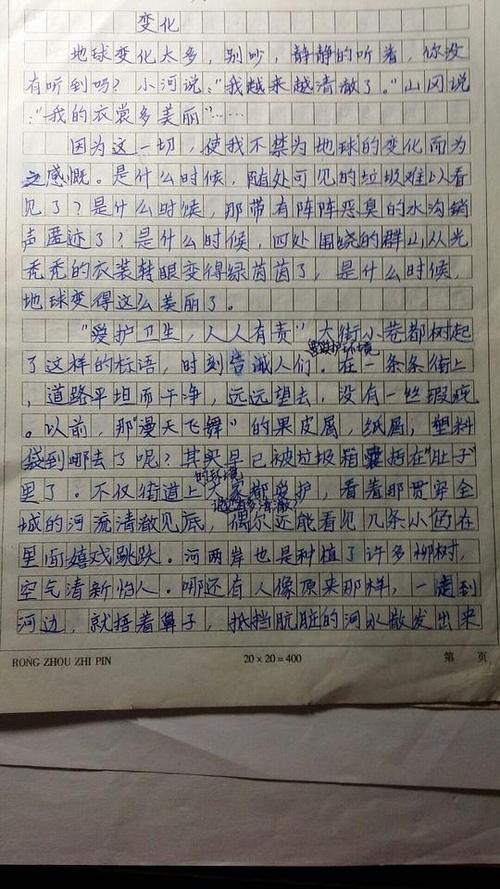 变化
地球变化太多，别吵，静静的听着，你没
有听到吗？小河说：“我越来越清澈了。”山冈说
：“我的衣裳多美丽”……
因为这一切，使我不禁为地球的变化而为
之感慨。是什么时候，随处可见的垃圾难以看
见了？是什么时候，那带有阵阵恶臭的水沟销
声匿迹了？是什么时候，四处围绕的群山从光
秃秃的衣装转眼变得绿茵茵了，是什么时候，
地球变得这么美丽了。
“爱护卫生，人人有责”大街小巷都树起
了这样的标语，时刻告诫人们．在一条条街上
要爱护环境
，道路平坦而干净，远远望去，没有一丝瑕疵
。以前，那“漫天飞舞”的果皮屑，纸屑，塑料
袋到哪去了呢？其实是已被垃圾箱囊括在“肚子”
里了。不仅街道上大家都爱护，看着那贯穿全
的环境
城的河流清澈见底，偶尔还能看见几条小鱼在
里面嬉戏跳跃。河两岸也是种植了许多柳树，
空气清新怡人。哪还有人像原来那样，一走到
河边，就捂着鼻子，抵挡肮脏的河水散发出来
RONG ZHOU ZHI PIN
20×20=400
第 页